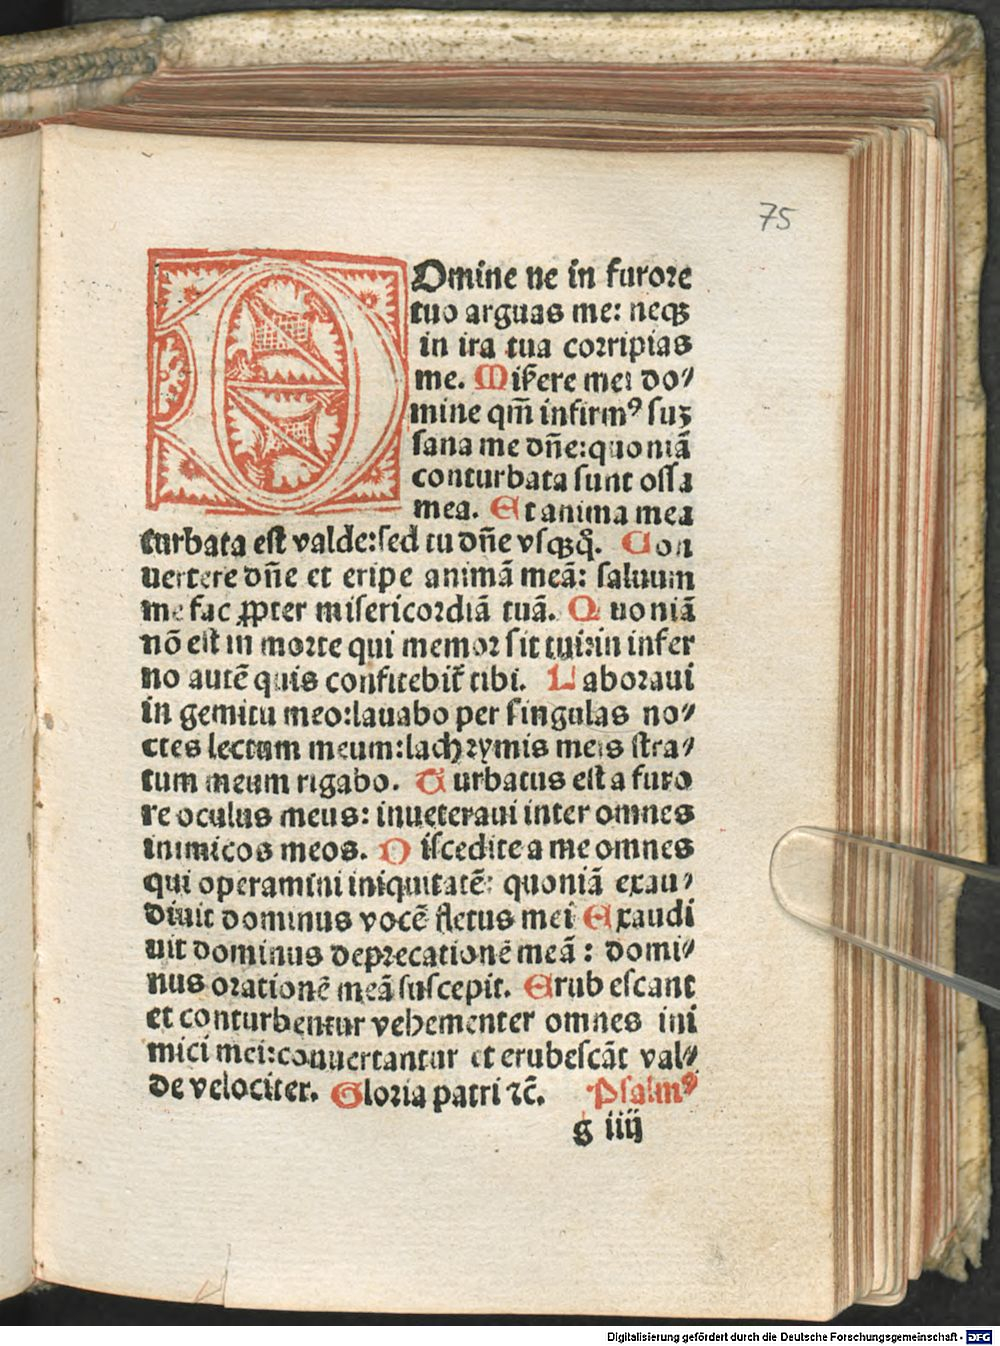 75
Domine ne in furore
tuo arguas me: neqꝫ
in ira tua corripias
me. Miẜere mei do⸗
mine qm̄ infirmꝰ suꝫ
sana me dn̄e: quoniā
conturbata sunt ossa
mea. Et anima mea
turbata est valde: sed tu dn̄e vsqꝫq̊. Con
uertere dn̄e et eripe animā meā: saluum
me fac ꝓpter misericordiā tuā. Quoniā
nō est in morte qui memor sit tui: in infer
no autē quis confitebit᷑ tibi. Laboraui
in gemitu meo: lauabo per singulas no⸗
ctes lectum meum: lachrymis meis stra⸗
tum meum rigabo. Turbatus est a furo
re oculus meus: inueteraui inter omnes
inimicos meos. Discedite a me omnes
qui operamini iniquitatē: quoniā exau⸗
diuit dominus vocē fletus mei Exaudi
uit dominus deprecationē meā: domi⸗
nus orationē meā suscepit. Erubescant
et conturbentur vehementer omnes ini
mici mei: conuertantur et erubescāt val⸗
de velociter. Gloria patri ⁊c̄. Psalmꝰ
g iiij
Digitalisierung gefördert durch die Deutsche Forschungsgemeinschaft - DFG